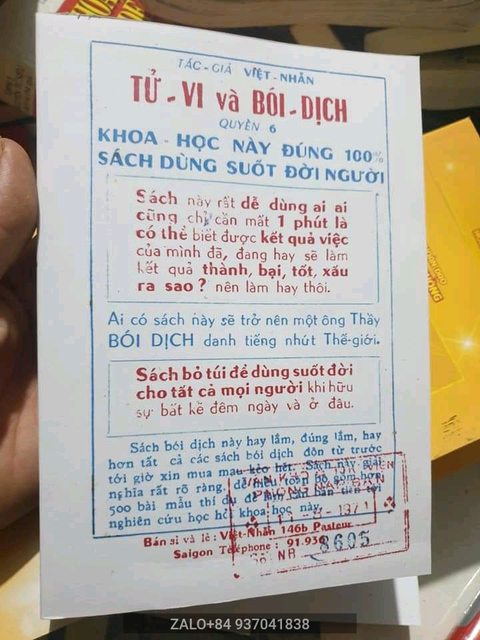 TÁC-GIẢ VIỆT-NHÂN
TỬ-VI và BÓI-DỊCH
QUYỂN 6
KHOA-HỌC NÀY ĐÚNG 100%
SÁCH DÙNG SUỐT ĐỜI NGƯỜI
Sách này rất dễ dùng ai ai
cũng chỉ cần mất 1 phút là
có thể biết được kết quả việc
của mình đã, đang hay sẽ làm
kết quả thành, bại, tốt, xấu
ra sao? nên làm hay thôi.
Ai có sách này sẽ trở nên một ông Thầy
BÓI DỊCH danh tiếng nhứt Thế-giới.
Sách bỏ túi để dùng suốt đời
cho tất cả mọi người khi hữu
sự bất kể đêm ngày và ở đâu.
Sách bói dịch này hay lắm, đúng lắm, hay
hơn tất cả các sách bói dịch đôn từ trước
tới giờ xin mua mau kẻo hết. Sách này giải
nghĩa rất rõ ràng, dễ hiểu toàn bộ gồm hơn
500 bài mẫu thí dụ để
nghiên cứu học hết khoa học này.
Bán sỉ và lẻ: Việt-Nhân 146b Pasteur
Saigon Téléphone: 91.936
8605
ZALO+84 937041838